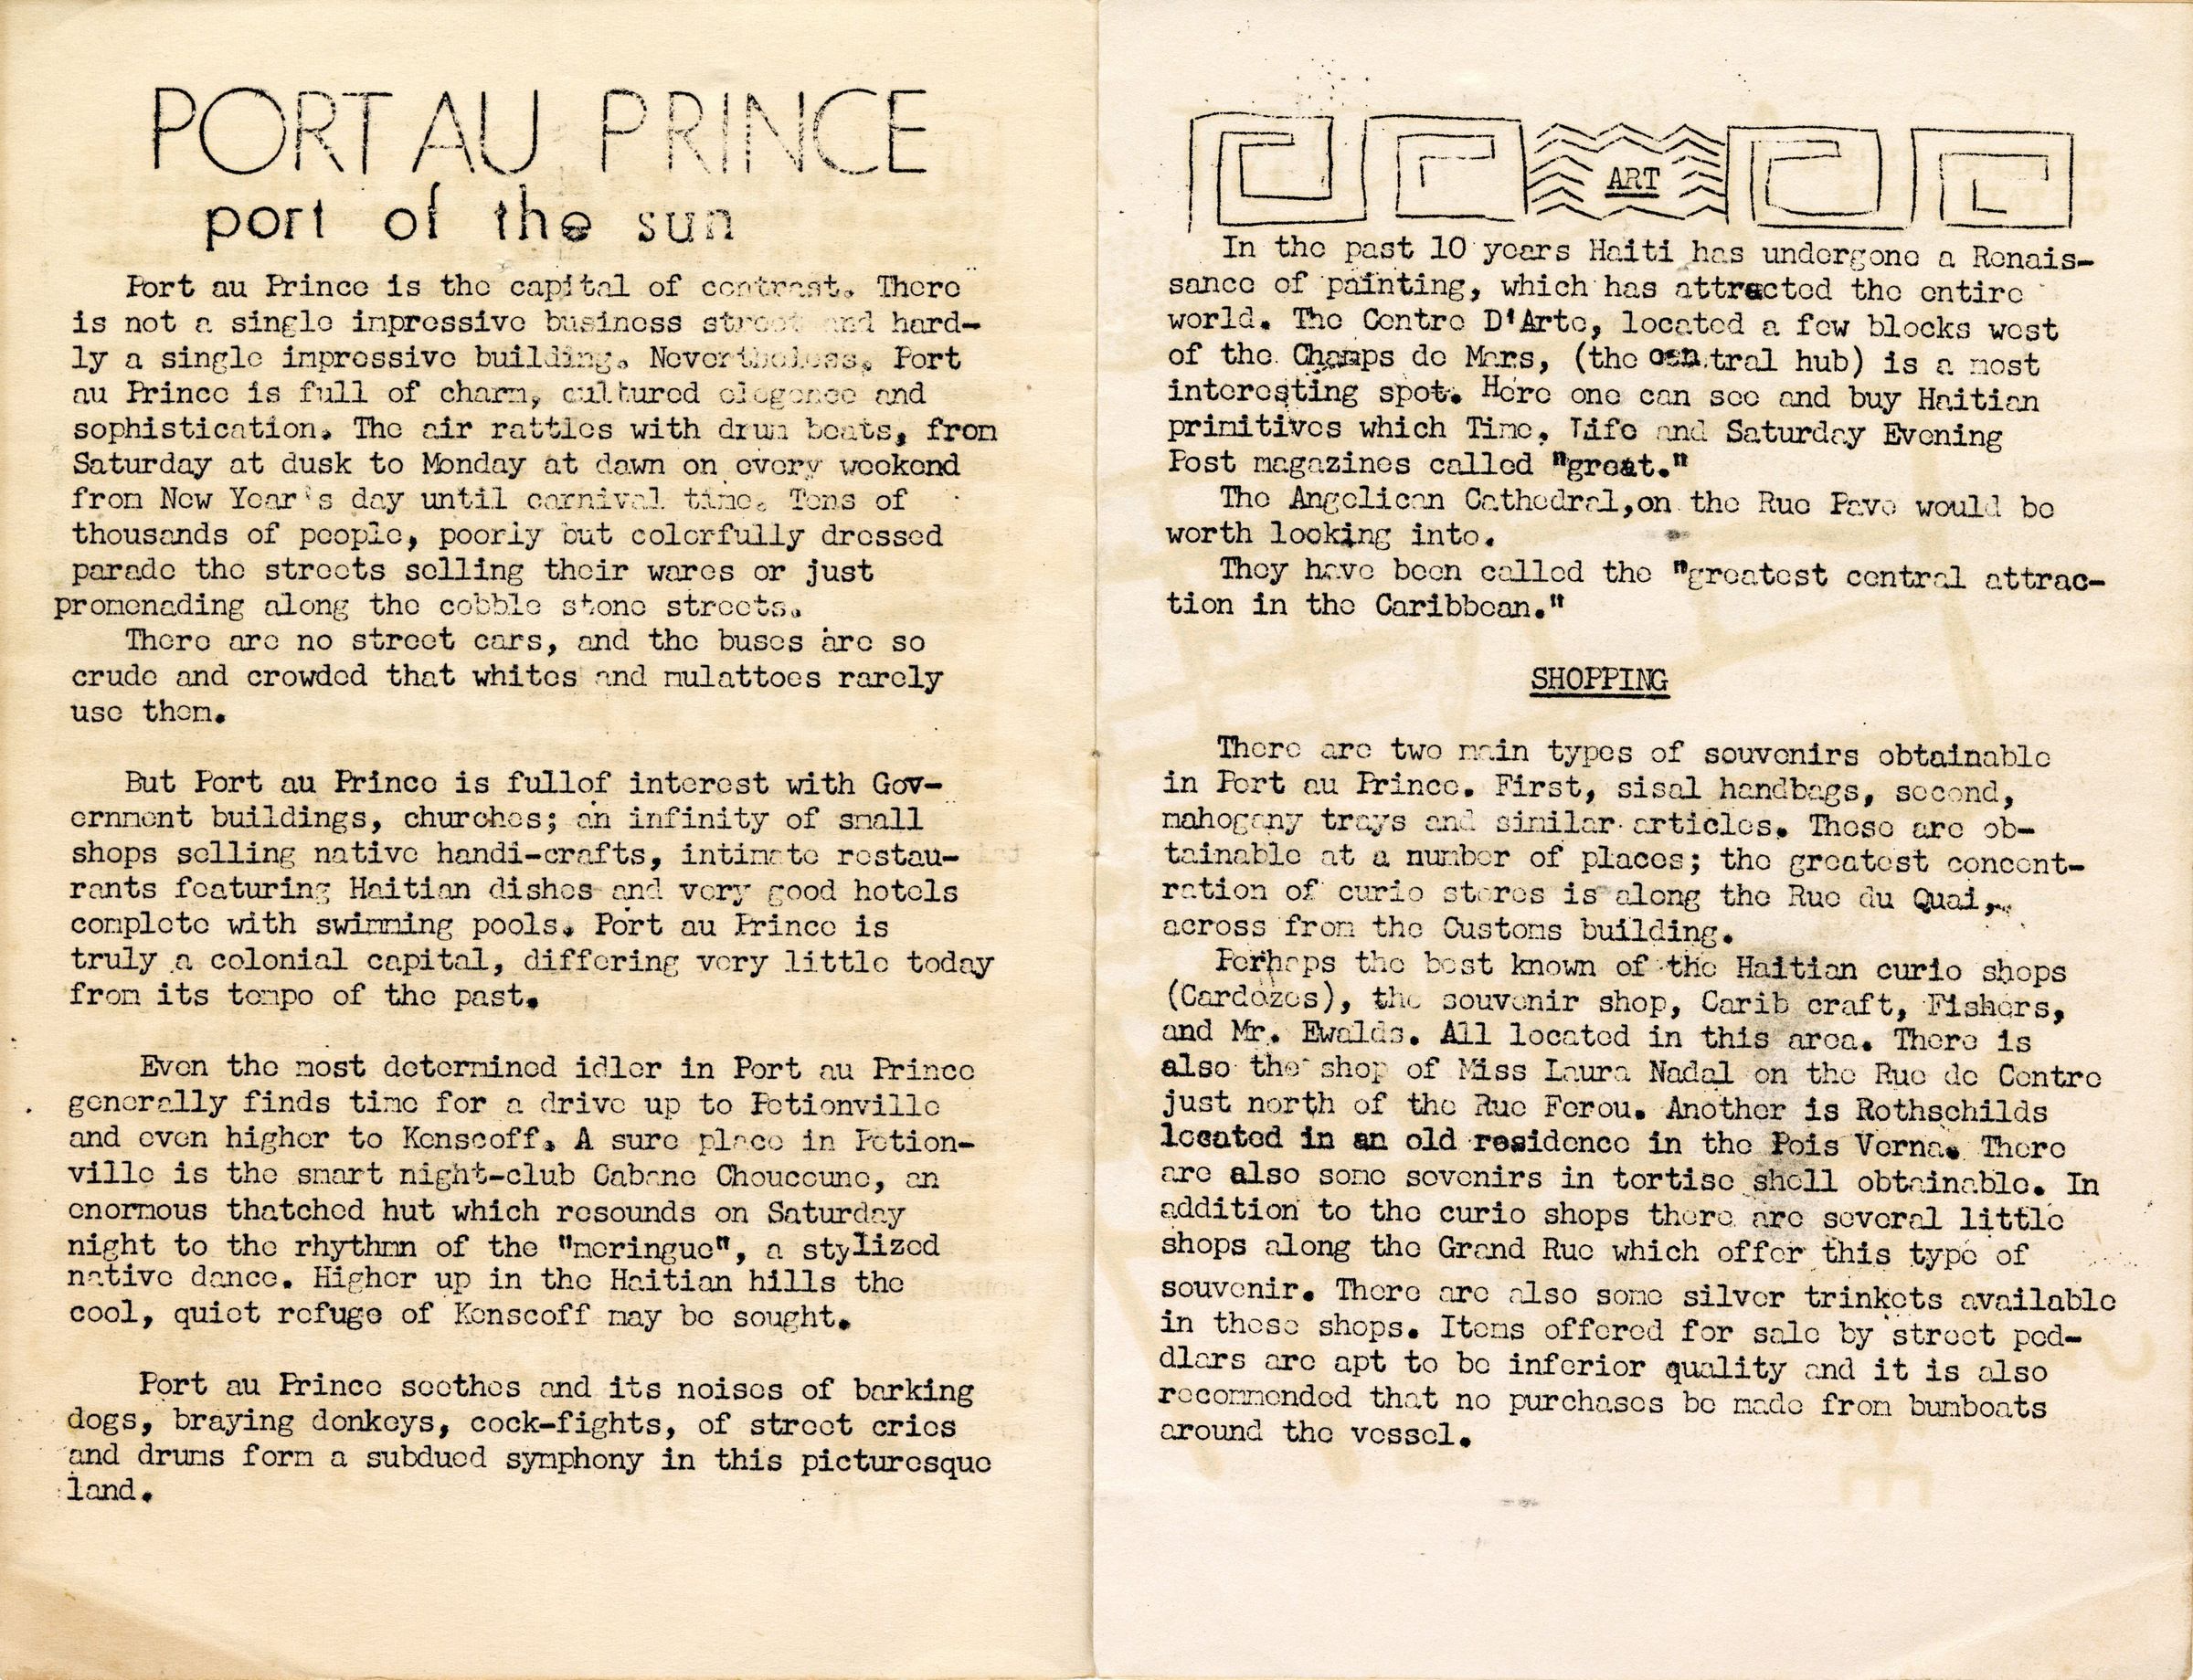 PORT AU PRINCE
port of the sun
Port au Prince is the capital of contrast. There
is not a single impressive business street and hard-
ly a single impressive building. Nevertheless, Port
au Prince is full of charm, cultured elegence and
sophistication. The air rattles with drum beats, from
Saturday at dusk to Monday at dawn on every weekend
from New Year's day until carnival time. Tens of
thousands of people, poorly but colorfully dressed
parade the streets selling their wares or just
promenading along the cobble stone streets.
There are no street cars, and the buses are so
crude and crowded that whites and mulattoes rarely
use them.
But Port au Prince is fullof interest with Gov-
ernment buildings, churches; an infinity of small
shops selling native handi-crafts, intimate restau-
rants featuring Haitian dishes and very good hotels
complete with swimming pools. Port au Prince is
truly a colonial capital, differing very little today
from its tempo of the past.
Even the most determined idler in Port au Prince
generally finds time for a drive up to Petionville
and even higher to Kenscoff. A sure place in Petion-
ville is the smart night-club Cabane Choucoune, an
enormous thatched hut which resounds on Saturday
night to the rhythmn of the "meringue", a stylized
native dance. Higher up in the Haitian hills the
cool, quiet refuge of Kenscoff may be sought.
Port au Prince soothes and its noises of barking
dogs, braying donkeys, cock-fights, of street cries
and drums form a subdued symphony in this picturesque
land.
ART
In the past 10 years Haiti has undergone a Renais-
sance of painting, which has attracted the entire
world. The Centre D'Arte, located a few blocks west
of the Champs de Mars, (the central hub) is a most
interesting spot. Here one can see and buy Haitian
primitives which Time, Life and Saturday Evening
Post magazines called "great."
The Angelican Cathedral,on the Rue Pave would be
worth looking into.
They have been called the "greatest central attrac-
tion in the Caribbean."
SHOPPING
There are two main types of souvenirs obtainable
in Port au Prince. First, sisal handbags, second,
mahogany trays and similar articles. These are ob-
tainable at a number of places; the greatest concent-
ration of curio stores is along the Rue du Quai,
across from the Customs building.
Perhaps the best known of the Haitian curio shops
(Cardozes), the souvenir shop, Carib craft, Fishers,
and Mr. Ewalds. All located in this area. There is
also the shop of Miss Laura Nadal on the Rue de Centre
just north of the Rue Ferou. Another is Rothschilds
located in an old residence in the Pois Verna. There
are also some sovenirs in tortise shell obtainable. In
addition to the curio shops there are several little
shops along the Grand Rue which offer this type of
souvenir. There are also some silver trinkets available
in these shops. Items offered for sale by street ped-
dlars are apt to be inferior quality and it is also
recommended that no purchases be made from bumboats
around the vessel.